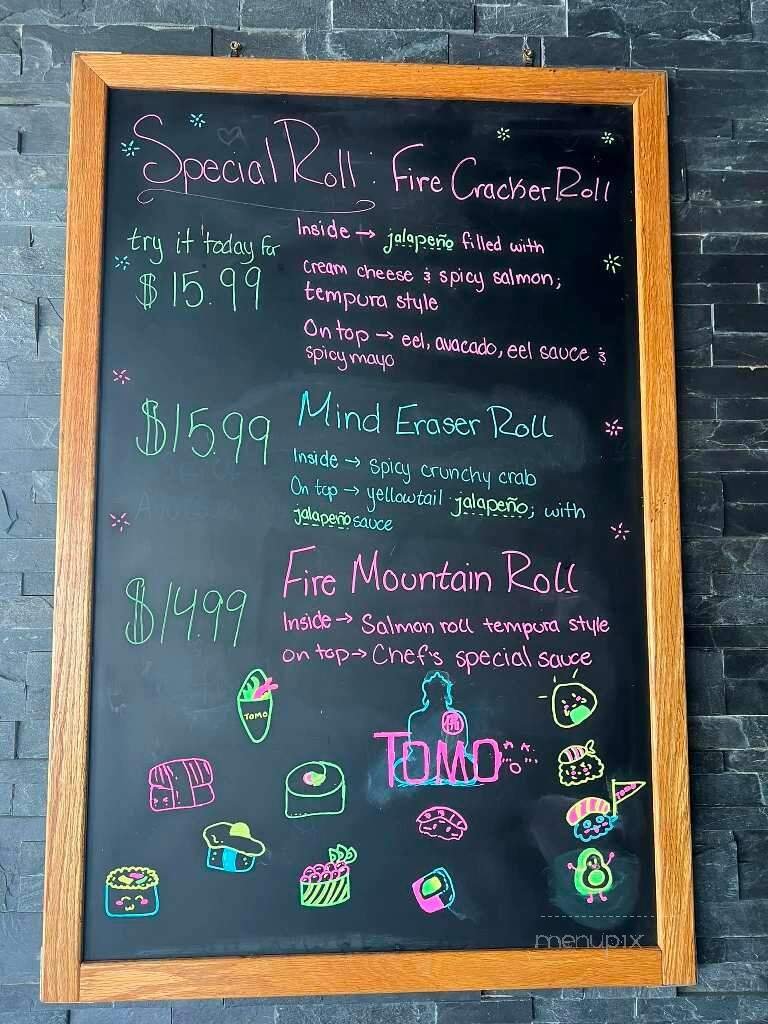 Special Roll: Fire Cracker Roll
try it today for
$15.99
Inside → jalapeño filled with
cream cheese & spicy salmon;
tempura style
On top → eel, avacado, eel sauce &
spicy mayo
$15.99
Mind Eraser Roll
Inside → spicy crunchy crab
On top → yellowtail jalapeño; with
jalapeño sauce
$14.99
Fire Mountain Roll
Inside → Salmon roll tempura style
on top → Chef's special sauce
TOMO
TOMO
TOMO
menupix